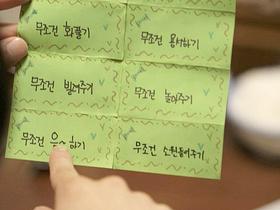 무조건 화풀기
무조건 용서하기
무조건 빌려주기
무조건 놀아주기
무조건 하기
무조건 소원들어주기